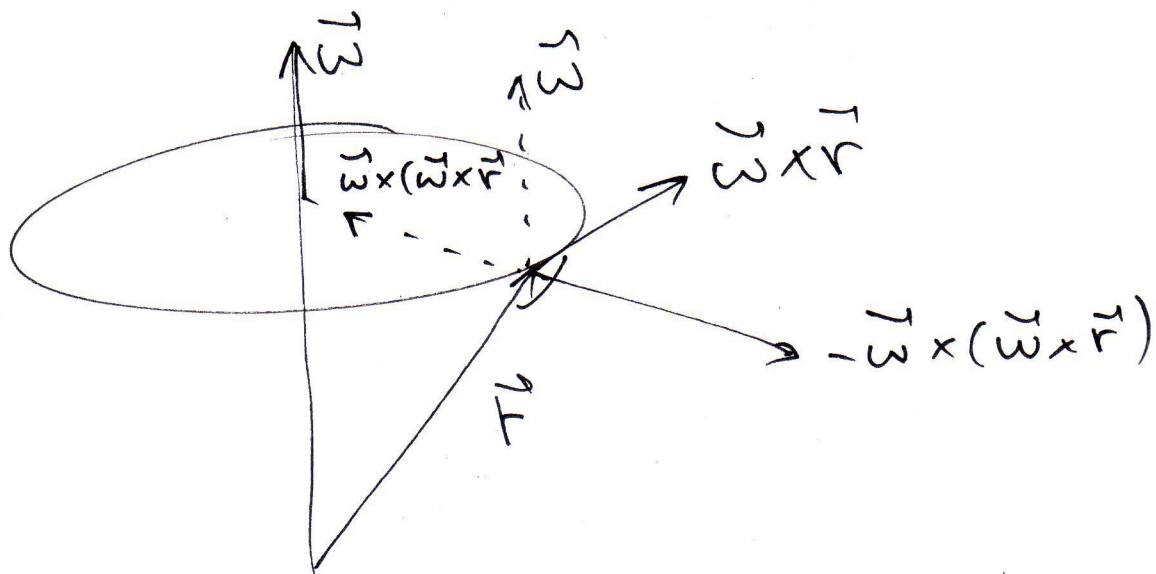 $\vec{\omega}$
$\vec{\omega}$
$\vec{\omega} \times \vec{r}$
$\vec{\omega} \times (\vec{\omega} \times \vec{r}$
$-\vec{\omega} \times (\vec{\omega} \times \vec{r})$
$\vec{r}$